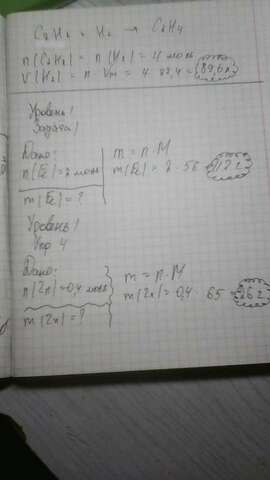 C₂H₂ + H₂ → C₂H₄
n(C₂H₂) = n(H₂) = 4 моль
V(H₂) = n · Vm = 4 · 22,4 = 89,6 л
Уровень 1
Задача 1
Дано:
n(Fe) = 2 моль
m(Fe) = ?
m = n · M
m(Fe) = 2 · 56 = 112 г
Уровень 1
Упр 4
Дано:
n(Zn) = 0,4 моль
m(Zn) = ?
m = n · M
m(Zn) = 0,4 · 65 = 26 г